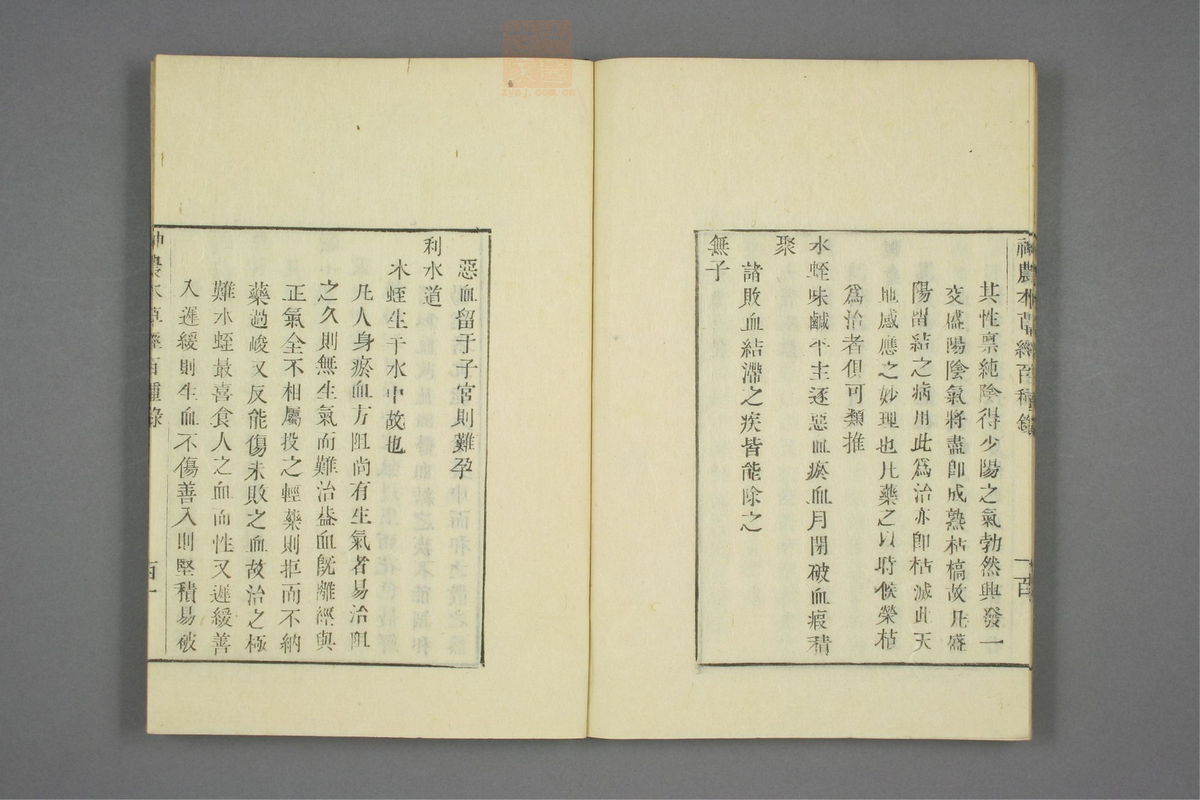 神農本草經百種錄
一百
其性稟純陰得少陽之氣勃然興發一
交盛陽陰氣將盡卽成熟枯槁故凡盛
陽留結之病用此爲治亦卽枯滅此天
地感應之妙理也凡藥之以時候榮枯
爲治者俱可類推
水蛭味鹹平主逐惡血瘀血月閉破血瘕積
聚
諸敗血結滯之疾皆能除之
無子
惡血留于子宮則難孕
利水道
水蛭生于水中故也
凡人身瘀血方阻尚有生氣者易治阻
之久則無生氣而難治蓋血旣離經與
正氣全不相屬投之輕藥則拒而不納
藥過峻又反能傷未敗之血故治之極
難水蛭最喜食人之血而性又遲緩善
入遲緩則生血不傷善入則堅積易破
神農本草經百種錄
百一
zysj.com.cn